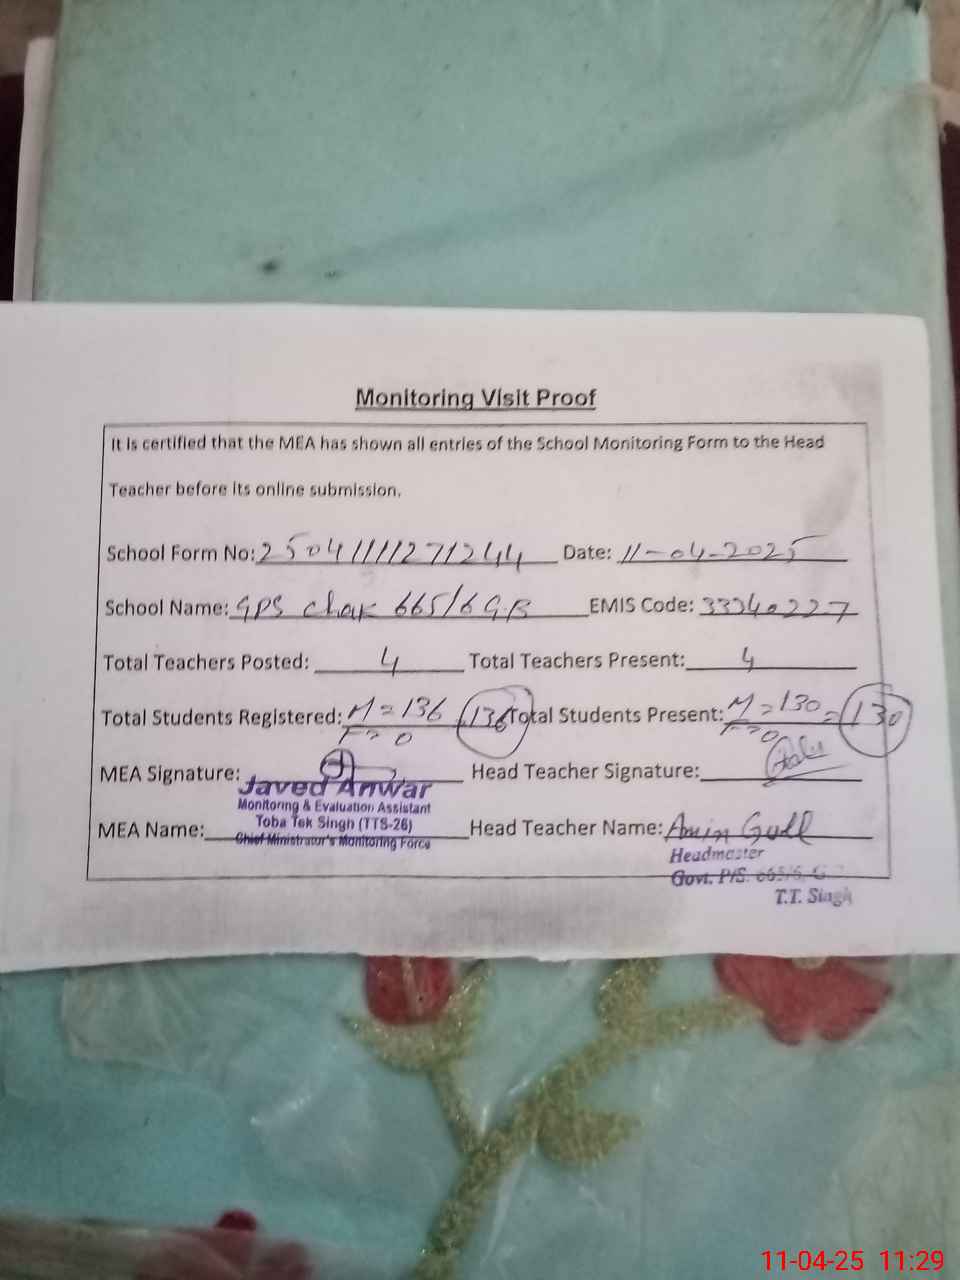 Monitoring Visit Proof
It is certified that the MEA has shown all entries of the School Monitoring Form to the Head
Teacher before its online submission.
School Form No: 250411111271244 Date: 11-04-2025
School Name: GPS Chak 665/6 G.B EMIS Code: 33340227
Total Teachers Posted: 4 Total Teachers Present: 4
Total Students Registered: M = 136 136 Total Students Present: M = 130 = 130
F = 0 F = 0
MEA Signature: Head Teacher Signature:
Javed Anwar
Monitoring & Evaluation Assistant
Toba Tek Singh (TTS-26)
Chief Ministrator's Monitoring Force
MEA Name: Head Teacher Name: Amin Gull
Headmaster
Govt. P/S. 665/6, G
T.T. Singh
11-04-25 11:29